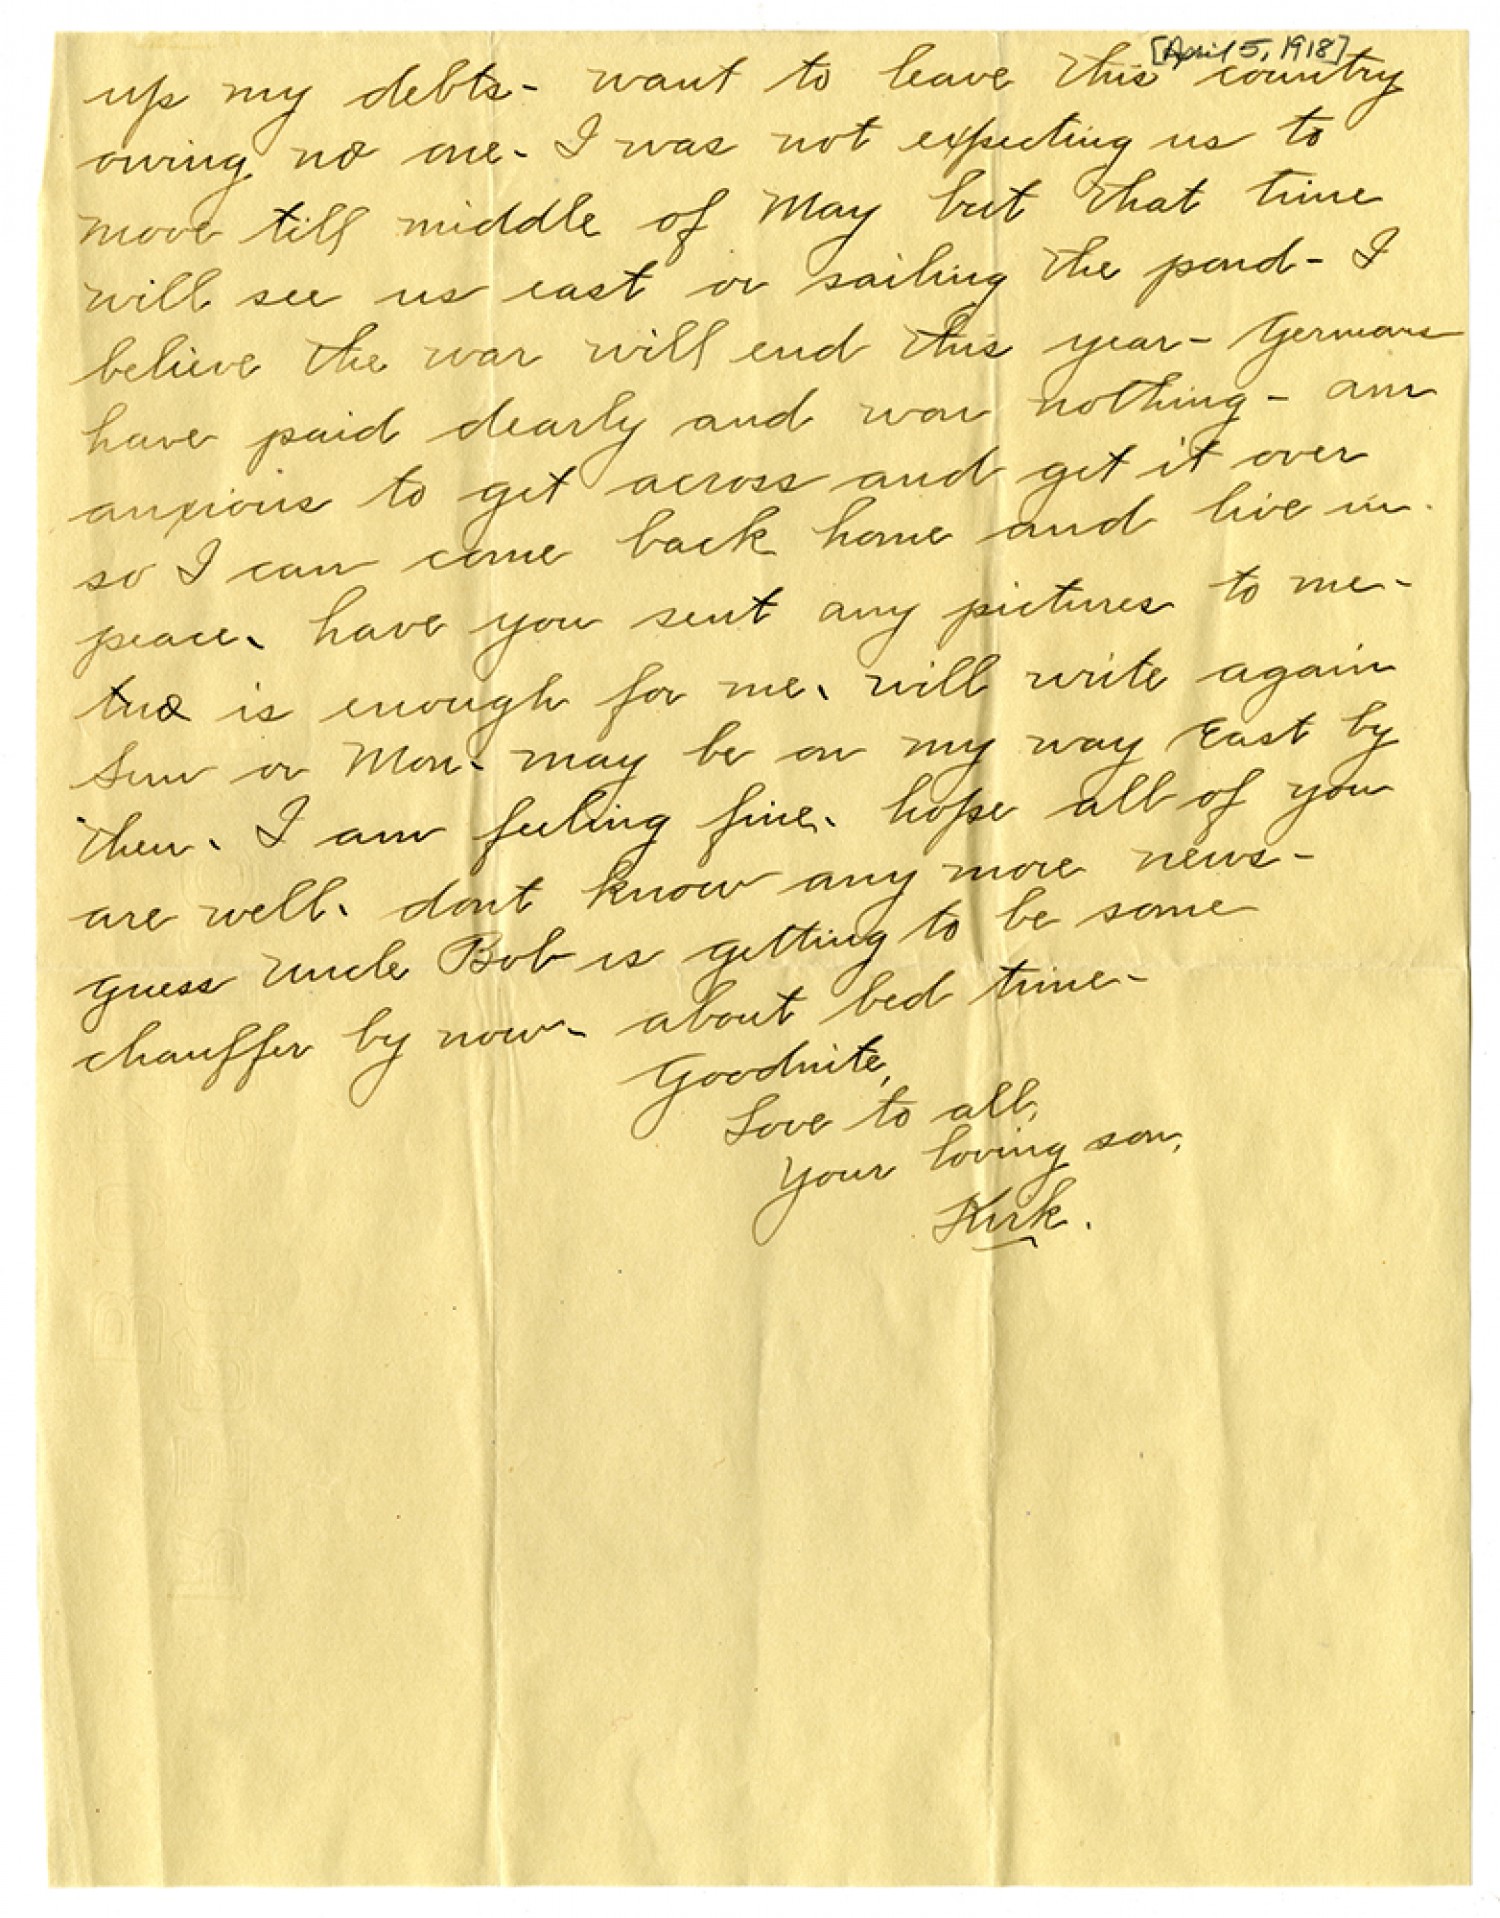 [April 5, 1918]
up my debts- want to leave this country
owing no one- I was not expecting us to
move till middle of May but that time
will see us east or sailing the pond- I
believe the war will end this year- Germans
have paid dearly and won nothing- am
anxious to get across and get it over
so I can come back home and live in
peace. have you sent any pictures to me-
two is enough for me. will write again
Sun or Mon. may be on my way East by
then. I am feeling fine. hope all of you
are well. dont know any more news-
guess Uncle Bob is getting to be some
chauffer by now- about bed time-
Goodnite,
Love to all,
Your loving son,
Kirk.